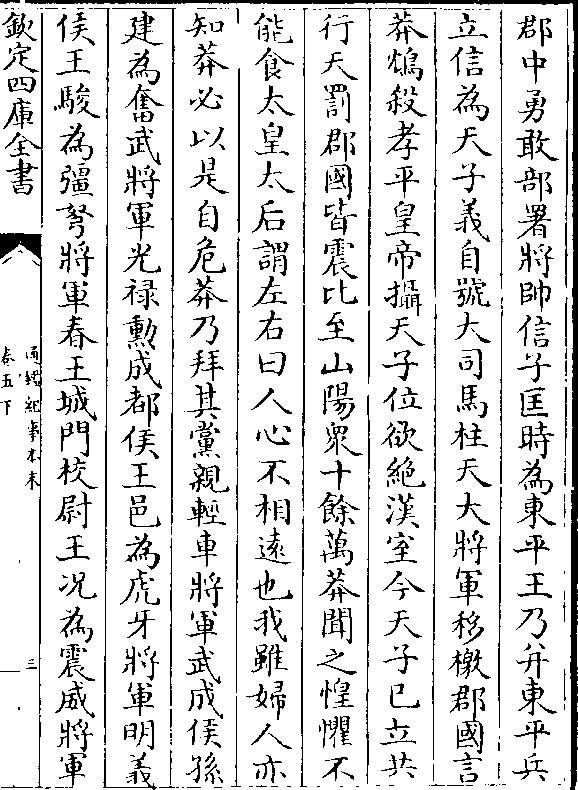 郡中勇敢部署將帥信子匡時為東平王乃并東平兵
立信為天子義自號大司馬柱天大將軍移檄郡國言
莽鴆殺孝平皇帝攝天子位欲絶漢室今天子已立共
行天罰郡國皆震比至山陽衆十餘萬莽聞之惶懼不
能食太皇太后謂左右曰人心不相遠也我雖婦人亦
知莽必以是自危莽乃拜其黨親輕車將軍武成侯孫
建為奮武將軍光禄勲成都侯王邑為虎牙將軍明義
侯王駿為彊弩將軍春王城門校尉王况為震威將軍
欽定四庫全書
通鑑紀事本末
卷五下
三